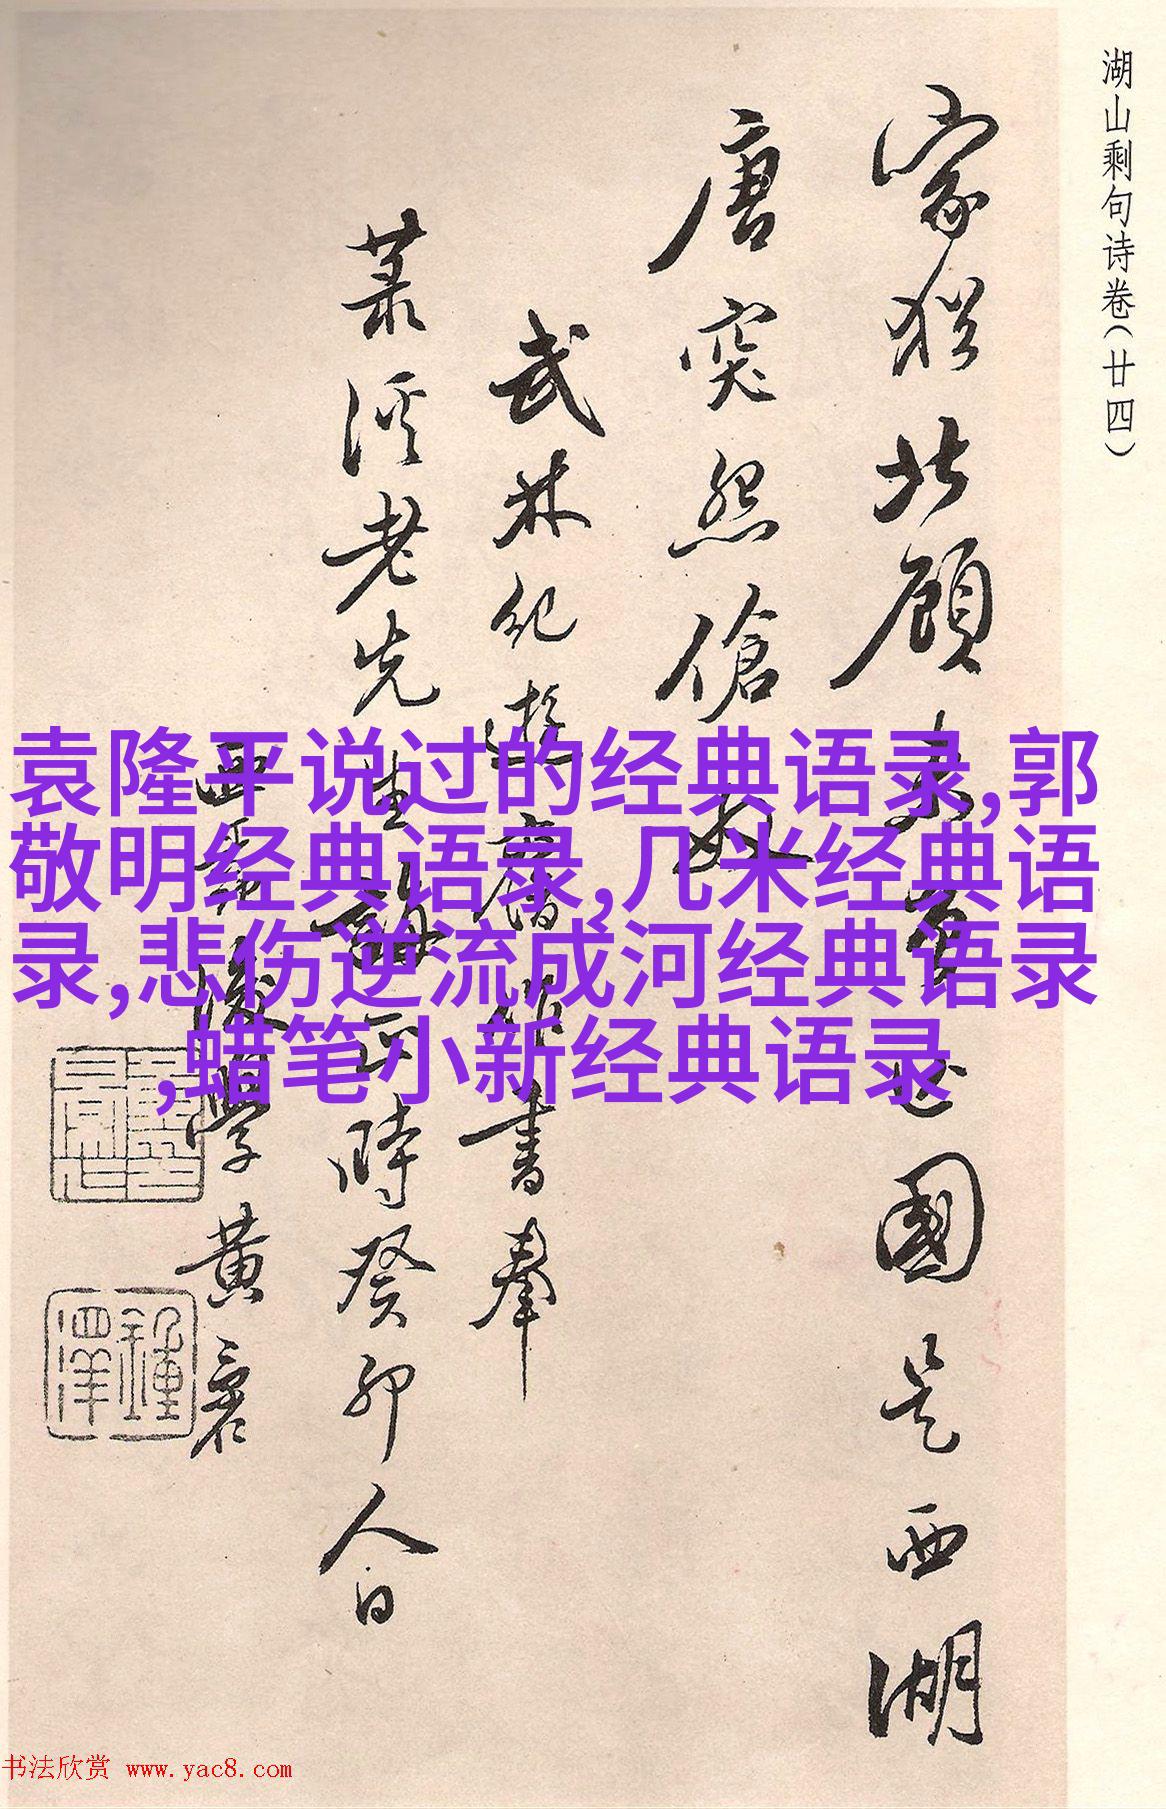 湖山剩句诗卷(廿四)
北顧國是西湖
唐突傖奴
武林紀遊舊作書奉
溪老先生正時癸卯人日
後學黃
袁隆平说过的经典语录,郭
敬明经典语录,几米经典语
录,悲伤逆流成河经典语录
,蜡笔小新经典语录
书法欣赏 www.yac8.com